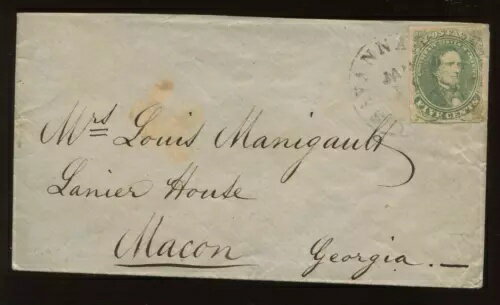 SAVANNA
JAN
POSTAGE
FIVE CENTS
Mrs Louis Manigault
Lanier House
Macon Georgia.